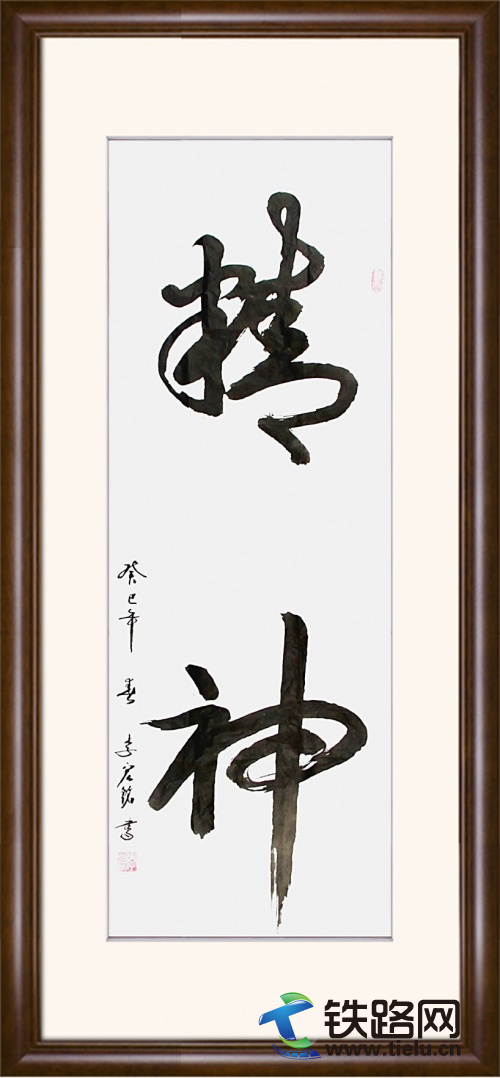 精神
癸巳年 春 李宏铭 書
铁路网
www.tielu.cn